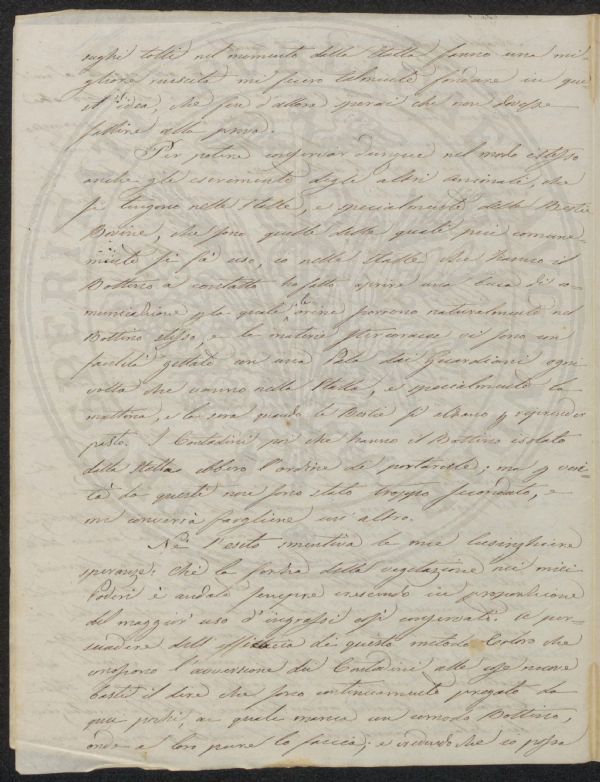 sughi tolti nel momento della Stalla fanno una mi-
gliore riuscita mi fecero talmente fondare in que-
st'idea, che fin d'allora sperai che non dovesse
fallire alla prova.
Per potere conservar dunque nel modo istesso
anche gli escrementi degli altri animali, che
si tengono nelle Stalle, e specialmente delle Bestie
Bovine, che sono quelle delle quali più comune-
mente si fà uso, io nelle Stalle che hanno il
Bottino a contatto ho fatto aprire una buca di co-
municazione p la quale le orine scorrono naturalmente nel
Bottino stesso, e le materie stercoracee vi sono con
facilità gettate con una Pala dai Guardiani ogni
volta che vanno nella Stalla, e specialmente la
mattina, e la sera quando le Bestie si alzano p riprender
pasto. I Contadini poi che hanno il Bottino isolato
dalla Stalla ebbero l'ordine di portarcele; ma p veri-
tà da questi non sono stato troppo secondato, e
mi converrà fargliene un altro.
Nè l'esito smentiva le mie lusinghiere
speranze: chè la forza della vegetazione nei miei
Poderi è andata sempre crescendo in proporzione
del maggior uso d'ingrassi così conservati. A per-
suadere dell'efficacia di questo metodo Coloro che
conoscono l'avversione dei Contadini alle cose nuove
basti il dire che sono continuamente pregato da
quei pochi, ai quali manca un comodo Bottino,
onde a loro pure lo faccia; e credendo che io possa